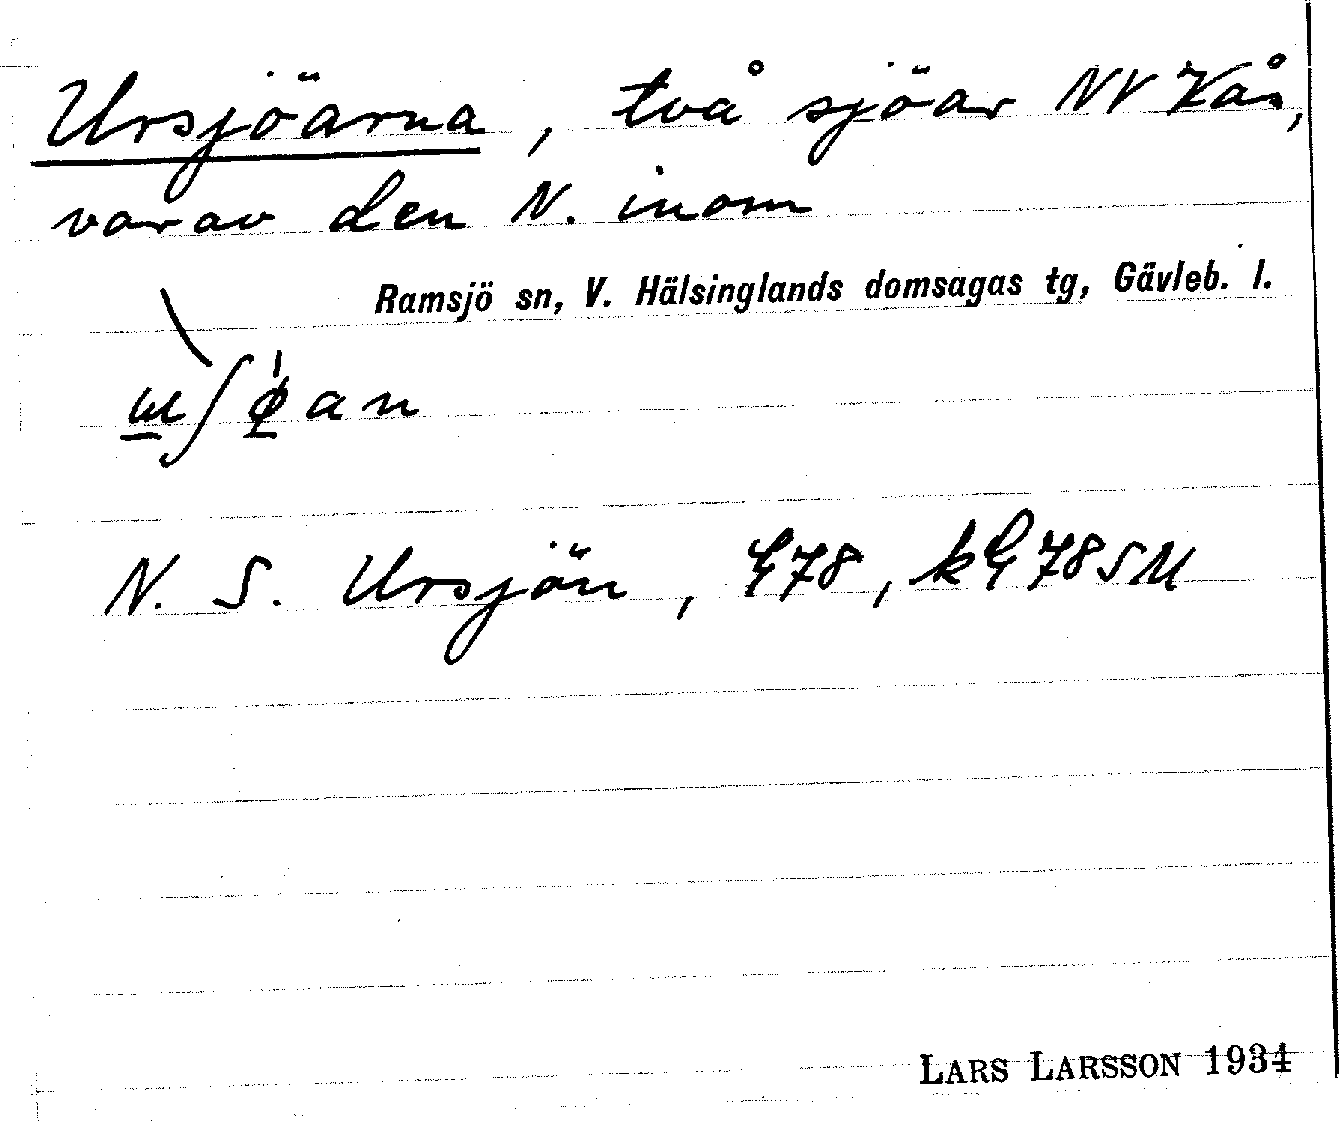 Ursjöarna, två sjöar NV Kån,
varav den N. inom
Ramsjö sn, V. Hälsinglands domsagas tg, Gävleb. l.
N. S. Ursjön, G78, kG78SM
LARS LARSSON 1934